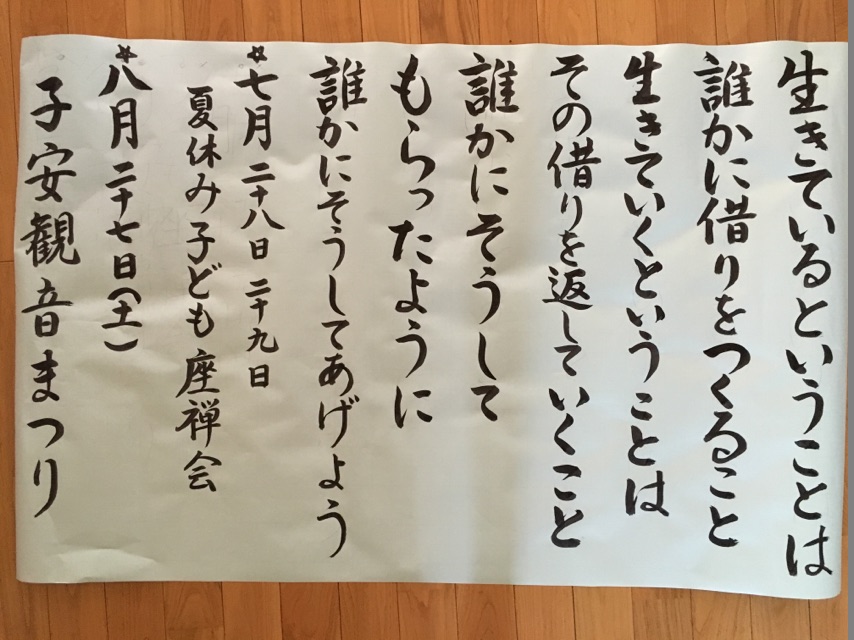 生きているということは
誰かに借りをつくること
生きていくということは
その借りを返していくこと
誰かにそうして
もらったように
誰かにそうしてあげよう
☆七月二十八日 二十九日
夏休み子ども座禅会
☆八月二十七日(土)
子安観音まつり